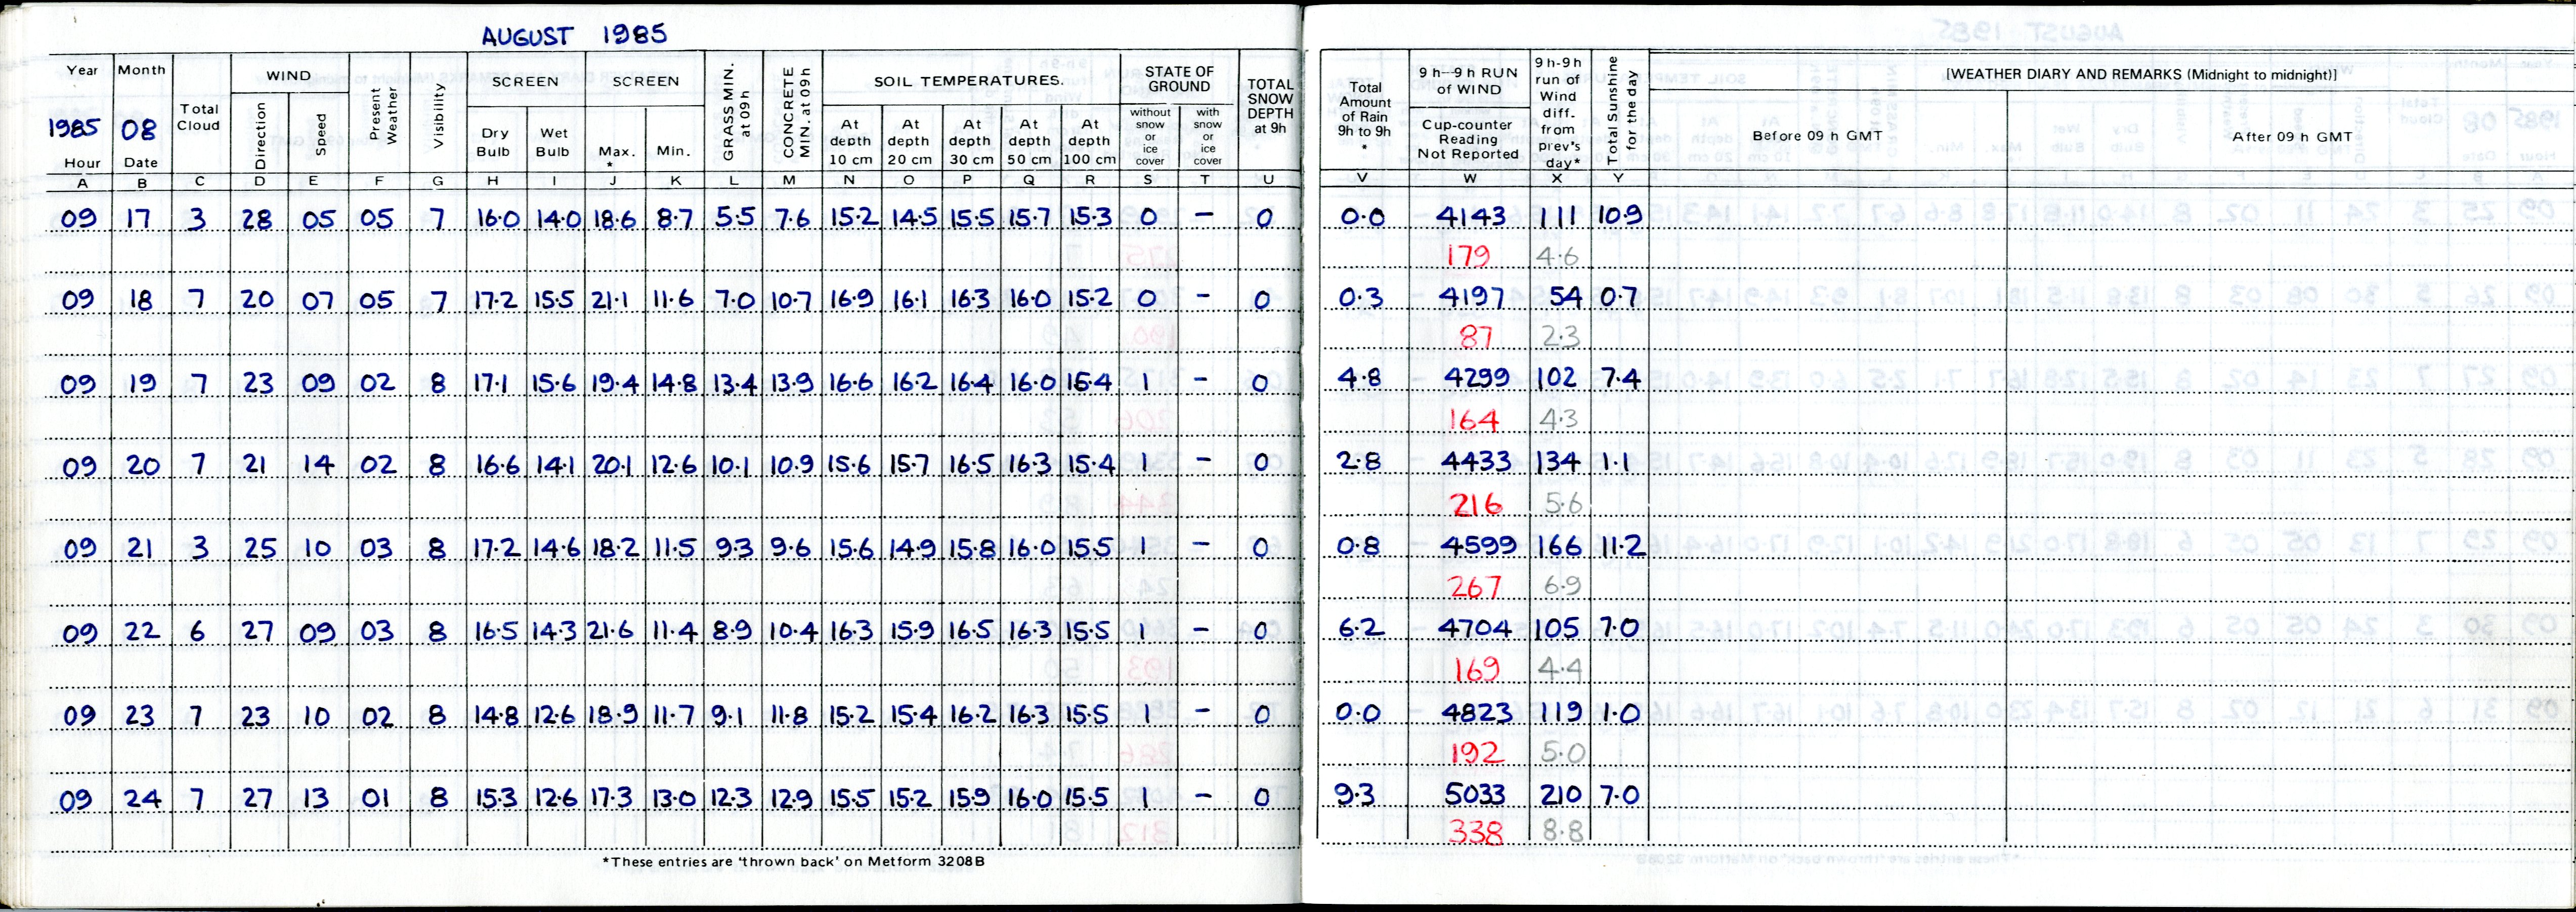 AUGUST 1985
Year Month Total Cloud WIND Present Weather Visibility SCREEN SCREEN GRASS MIN. at 09h CONCRETE MIN. at 09h SOIL TEMPERATURES. STATE OF GROUND TOTAL SNOW DEPTH at 9h Total Amount of Rain 9h to 9h * 9 h--9 h RUN of WIND 9 h-9h run of Wind diff. from prev's day* Total Sunshine for the day [WEATHER DIARY AND REMARKS (Midnight to midnight)]
1985 08 Direction Speed Dry Bulb Wet Bulb Max. * Min. At depth 10 cm At depth 20 cm At depth 30 cm At depth 50 cm At depth 100 cm without snow or ice cover with snow or ice cover Cup-counter Reading Not Reported Before 09 h GMT After 09 h GMT
Hour Date
A B C D E F G H I J K L M N O P Q R S T U V W X Y
09 17 3 28 05 05 7 16.0 14.0 18.6 8.7 5.5 7.6 15.2 14.5 15.5 15.7 15.3 0 – 0 0.0 4143 111 10.9
179 4.6
09 18 7 20 07 05 7 17.2 15.5 21.1 11.6 7.0 10.7 16.9 16.1 16.3 16.0 15.2 0 – 0 0.3 4197 54 0.7
87 2.3
09 19 7 23 09 02 8 17.1 15.6 19.4 14.8 13.4 13.9 16.6 16.2 16.4 16.0 15.4 1 – 0 4.8 4299 102 7.4
164 4.3
09 20 7 21 14 02 8 16.6 14.1 20.1 12.6 10.1 10.9 15.6 15.7 16.5 16.3 15.4 1 – 0 2.8 4433 134 1.1
216 5.6
09 21 3 25 10 03 8 17.2 14.6 18.2 11.5 9.3 9.6 15.6 14.9 15.8 16.0 15.5 1 – 0 0.8 4599 166 11.2
267 6.9
09 22 6 27 09 03 8 16.5 14.3 21.6 11.4 8.9 10.4 16.3 15.9 16.5 16.3 15.5 1 – 0 6.2 4704 105 7.0
169 4.4
09 23 7 23 10 02 8 14.8 12.6 18.9 11.7 9.1 11.8 15.2 15.4 16.2 16.3 15.5 1 – 0 0.0 4823 119 1.0
192 5.0
09 24 7 27 13 01 8 15.3 12.6 17.3 13.0 12.3 12.9 15.5 15.2 15.9 16.0 15.5 1 – 0 9.3 5033 210 7.0
338 8.8
*These entries are 'thrown back' on Metform 3208B